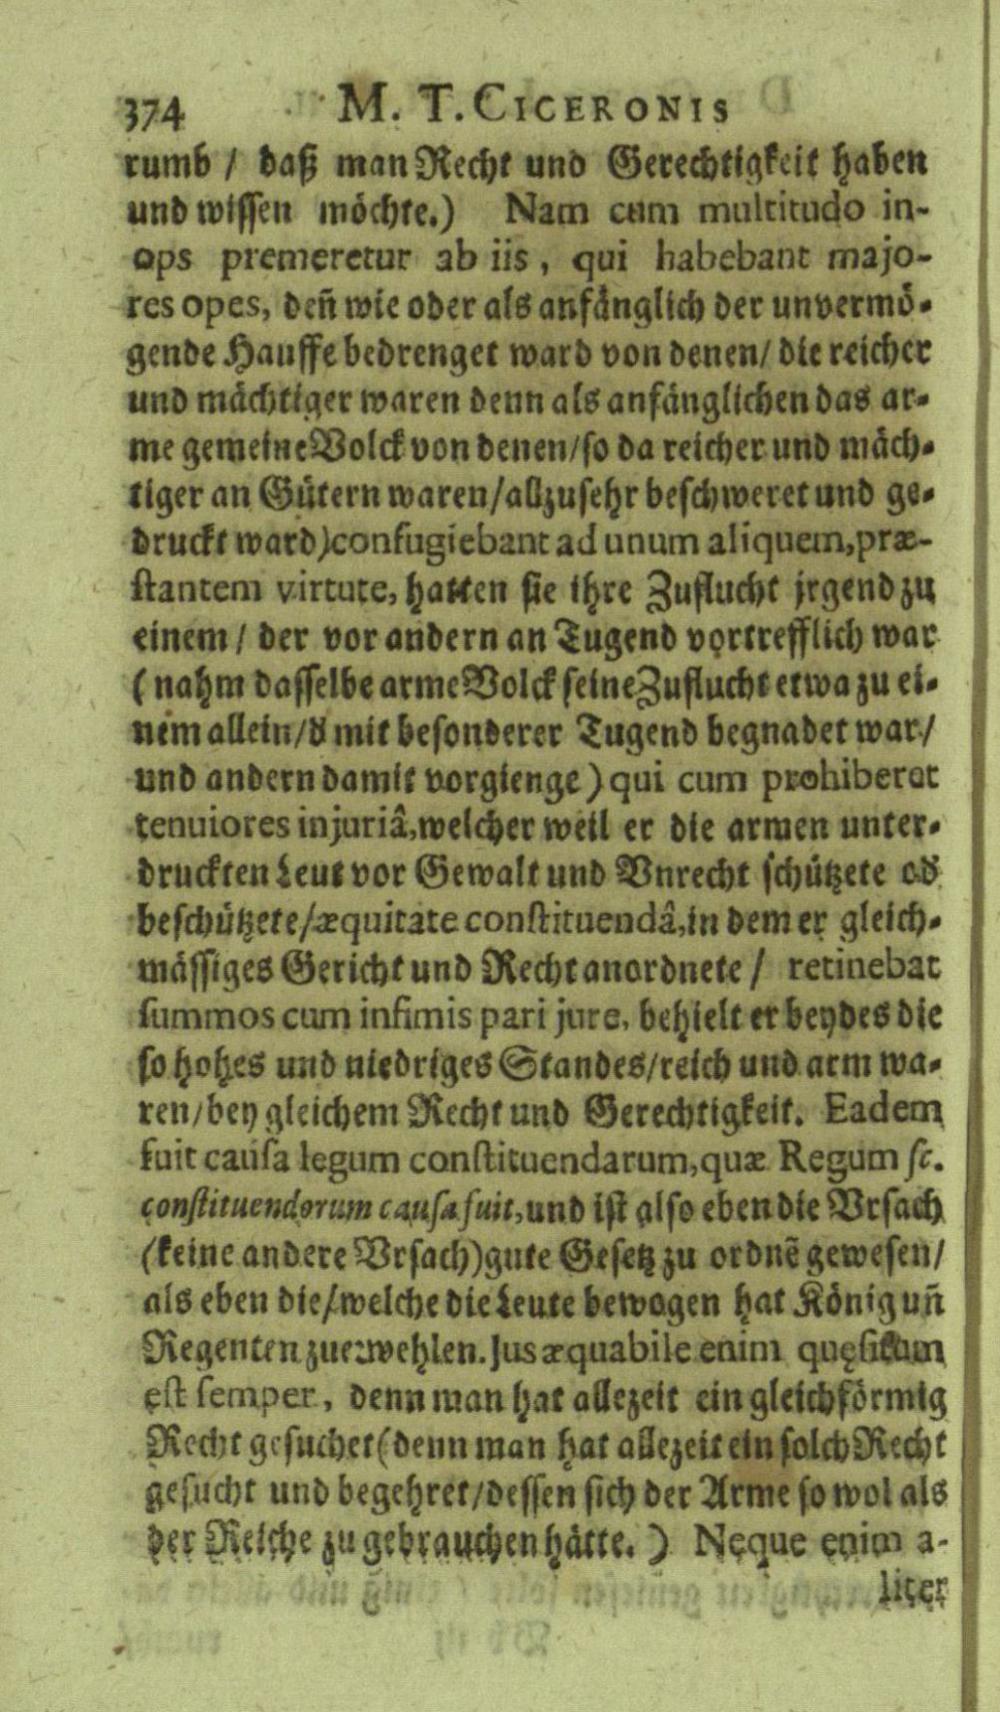 374 M. T. CICERONIS
rumb / daß man Recht und Gerechtigkeit haben
und wissen möchte.) Nam cum multitudo in-
ops premeretur ab iis, qui habebant majo-
res opes, deñ wie oder als anfänglich der unvermö-
gende Hauffe bedrenget ward von denen/ die reicher
und mächtiger waren denn als anfänglichen das ar-
me gemeine Volck von denen/so da reicher und mäch-
tiger an Gütern waren/allzusehr beschweret und ge-
druckt ward)confugiebant ad unum aliquem,præ-
stantem virtute, hatten sie ihre Zuflucht jrgend zu
einem/ der vor andern an Tugend vortrefflich war
(nahm dasselbe arme Volck seine Zuflucht etwa zu ei-
nem allein/d mit besonderer Tugend begnadet war/
und andern damit vorgienge) qui cum prohiberet
tenuiores injuriâ,welcher weil er die armen unter-
druckten Leut vor Gewalt und Vnrecht schützete od
beschützete/æquitate constituendâ,in dem er gleich-
mässiges Gericht und Recht anordnete / retinebat
summos cum infimis pari jure, behielt er beydes die
so hohes und niedriges Standes/reich und arm wa-
ren/bey gleichem Recht und Gerechtigkeit. Eadem
fuit causa legum constituendarum,quæ Regum sc.
constituendorum causa fuit,und ist also eben die Vrsach
(keine andere Vrsach)gute Gesetz zu ordnẽ gewesen/
als eben die/welche die Leute bewogen hat König uñ
Regenten zuerwehlen.Jus æquabile enim quęsitum
est semper, denn man hat allezeit ein gleichförmig
Recht gesuchet(denn man hat allezeit ein solch Recht
gesucht und begehret/dessen sich der Arme so wol als
der Reiche zu gebrauchen hätte.) Neque enim a-
liter